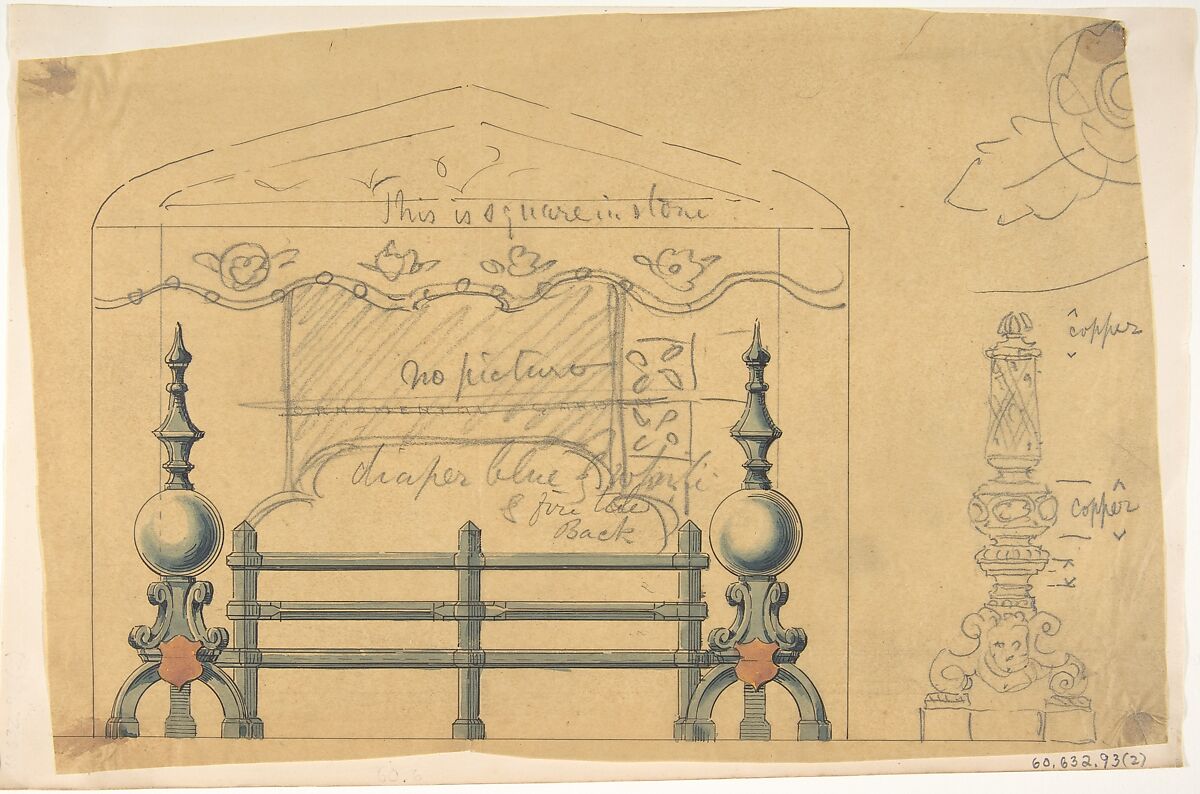 This is square in stone
no picture
ORNAMENTAL
diaper blue &
& fire tile
Back
copper
copper
60.632.93(2)